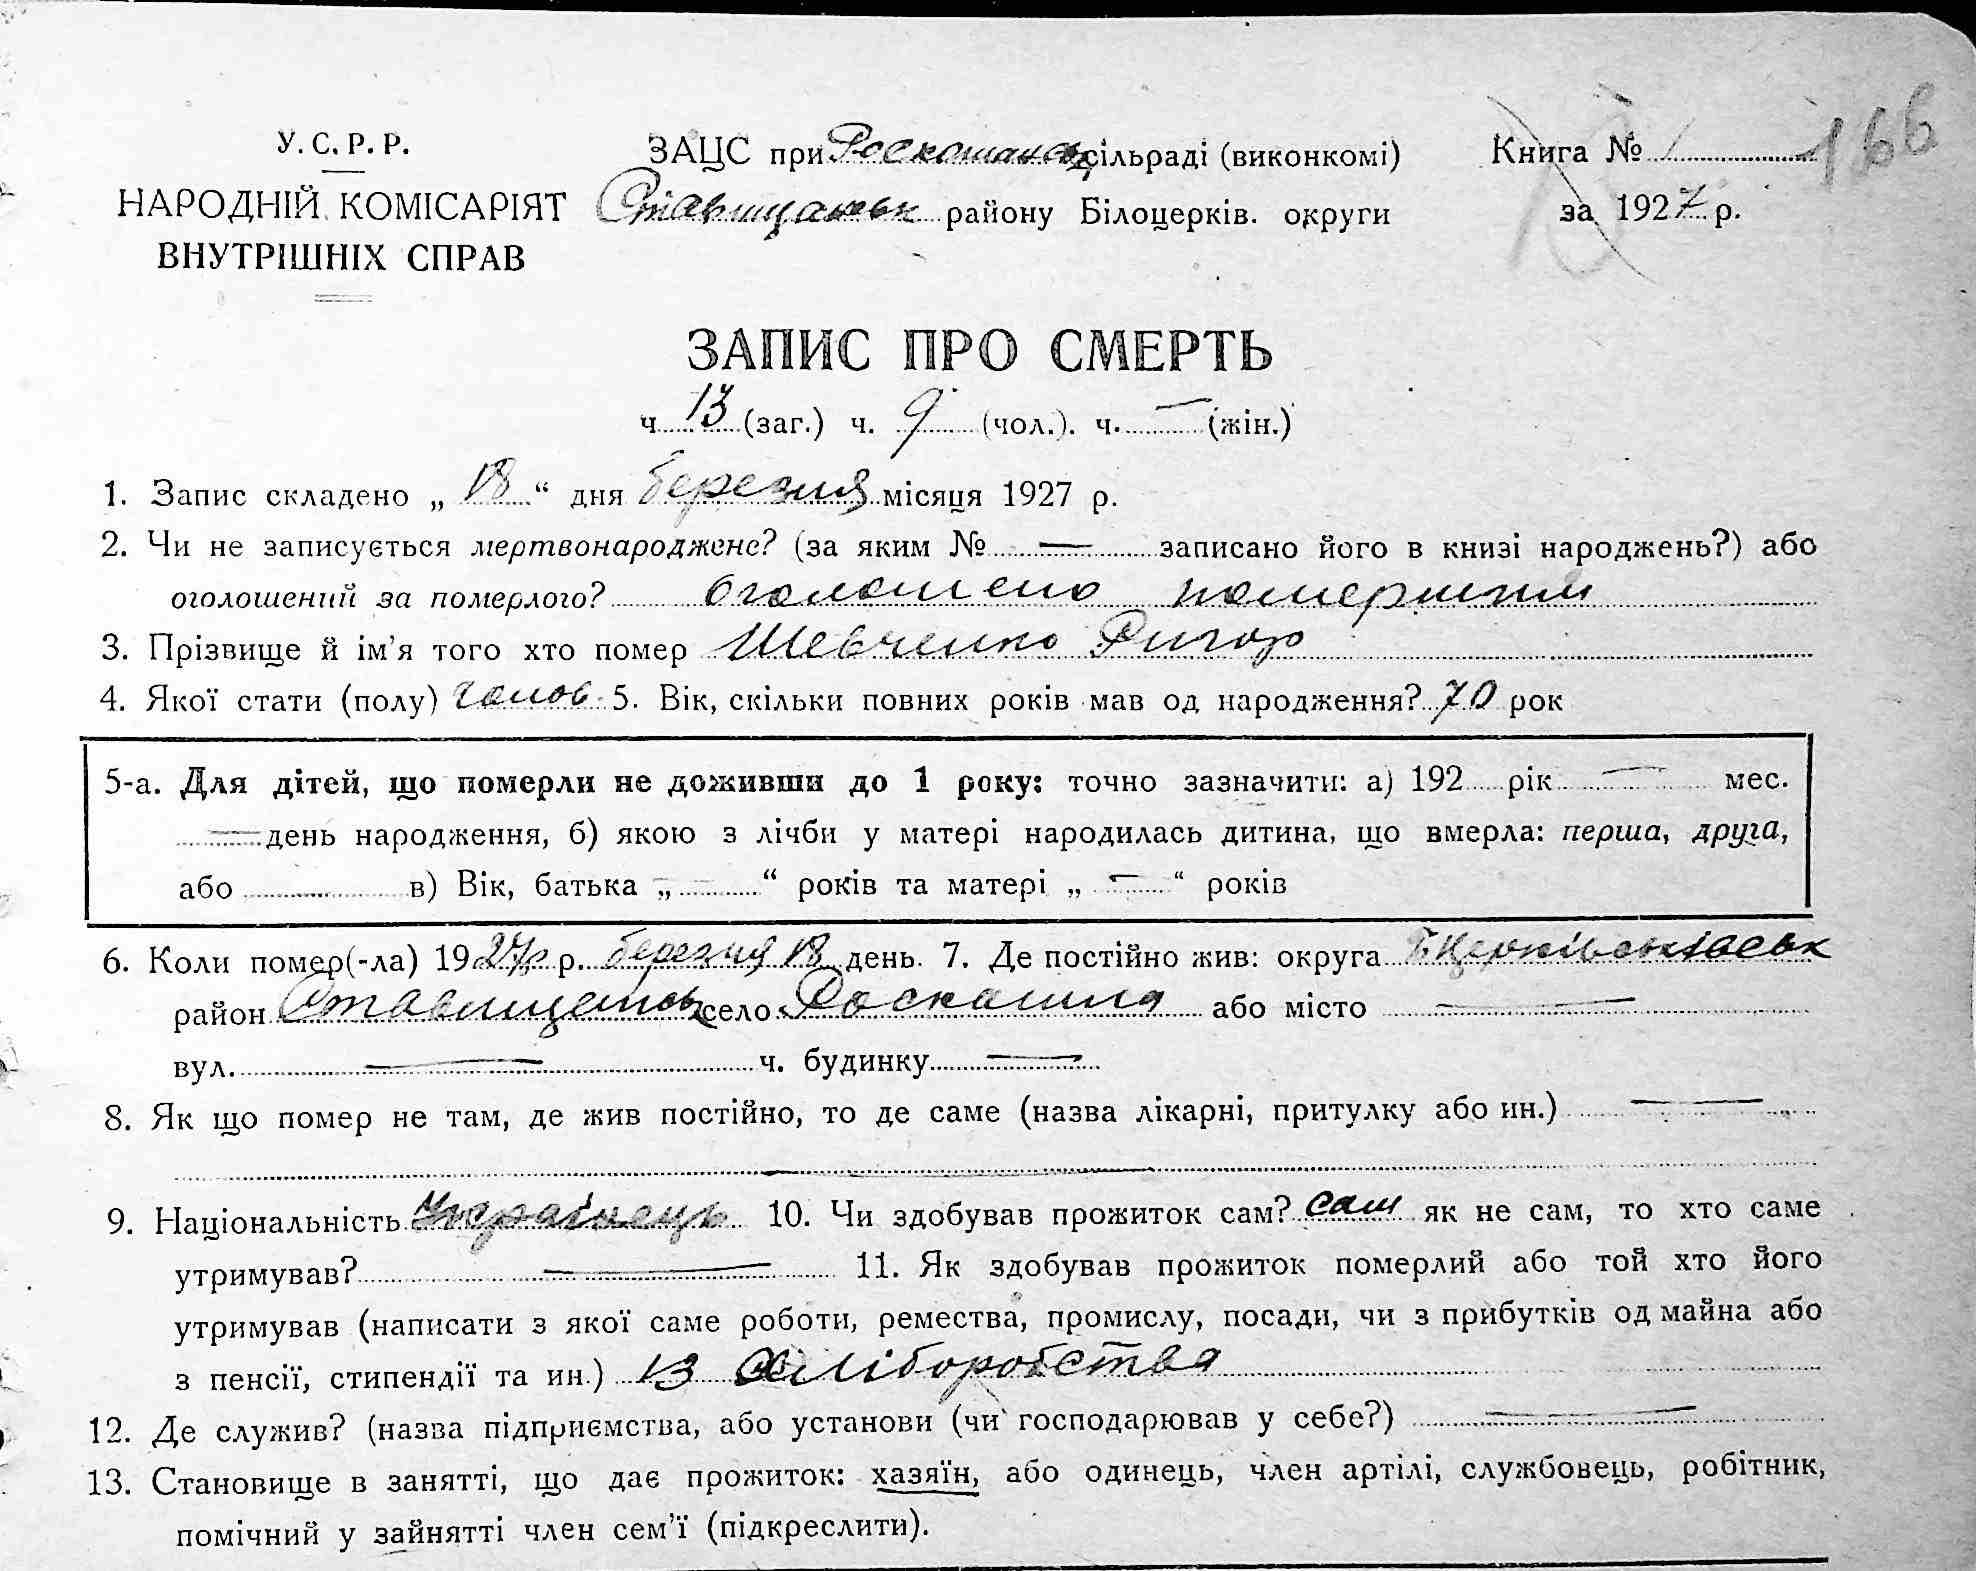 У.С.Р.Р.
НАРОДНІЙ КОМІСАРІЯТ
ВНУТРІШНІХ СПРАВ
ЗАЦС при Роскошанськ сільраді (виконкомі)
Ставищанськ району Білоцерків. округи
Книга № 1 166
за 1927 р.
ЗАПИС ПРО СМЕРТЬ
ч. 13 (заг.) ч. 9 (чол.). ч. — (жін.)
1. Запис складено „ 18 “ дня березня місяця 1927 р.
2. Чи не записується мертвонароджене? (за яким № — записано його в книзі народжень?) або
оголошений за померлого? оголошено помершим
3. Прізвище й ім'я того хто помер Шевченко Ригор
4. Якої стати (полу) чолов. 5. Вік, скільки повних років мав од народження? 70 рок
5-а. Для дітей, що померли не доживши до 1 року: точно зазначити: а) 192 рік — мес.
— день народження, б) якою з лічби у матері народилась дитина, що вмерла: перша, друга,
або в) Вік, батька „ — “ років та матері „ — “ років
6. Коли помер(-ла) 1927 р. березня 18 день. 7. Де постійно жив: округа
район Ставищенськ село Роскошна або місто —
вул. — ч. будинку —
8. Як що помер не там, де жив постійно, то де саме (назва лікарні, притулку або ин.) —
9. Національність Українець 10. Чи здобував прожиток сам? сам як не сам, то хто саме
утримував? — 11. Як здобував прожиток померлий або той хто його
утримував (написати з якої саме роботи, ремества, промислу, посади, чи з прибутків од майна або
з пенсії, стипендії та ин.) із хліборобства
12. Де служив? (назва підприємства, або установи (чи господарював у себе?) —
13. Становище в занятті, що дає прожиток: хазяїн, або одинець, член артілі, службовець, робітник,
помічний у зайнятті член сем'ї (підкреслити).